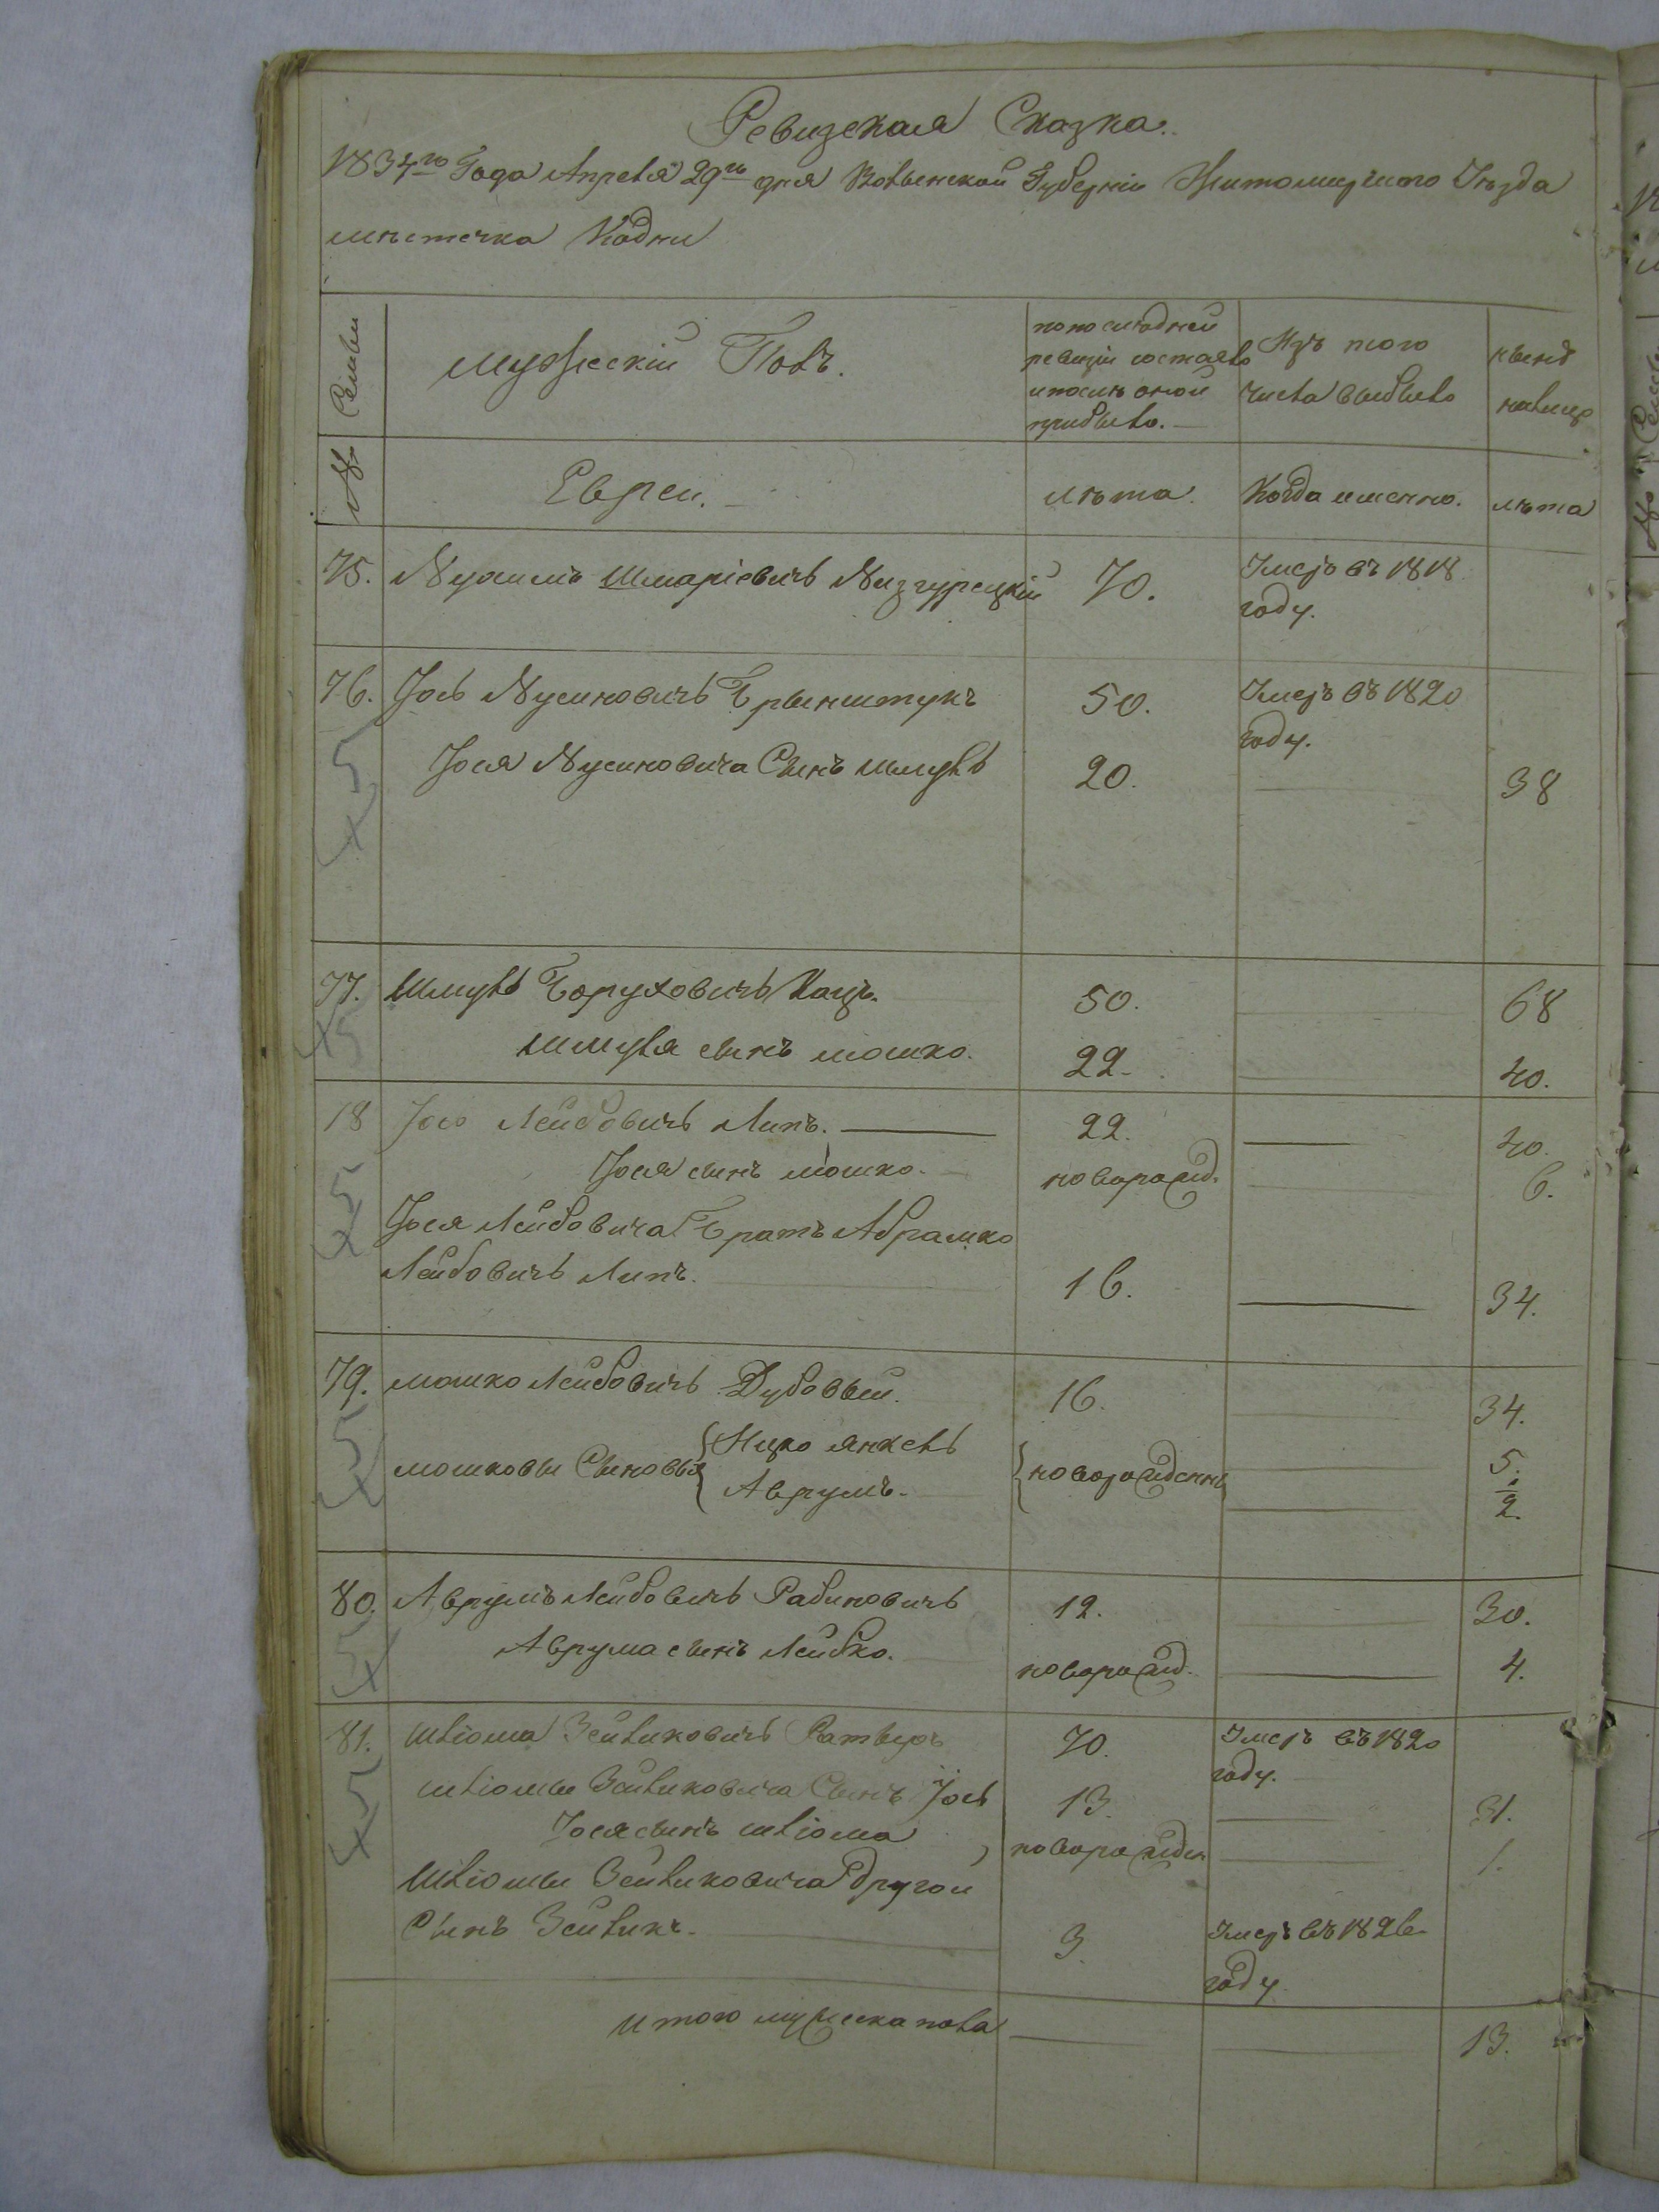 Ревизская Сказка.
1834го Года Апреля 29го дня Волынской Губерніи Житомирского Уезда
местечка Кодни
Семьи
Мужескій Полъ.
по последней
ревизіи состояло
и после оной
прибыло.
Изъ того
числа выбыло
ныне
налицо
№
Евреи.
лета.
Когда именно.
лета
75. Нухимъ Шмаріевичъ Мизгурецкій 70. Умеръ въ 1818
году.
76. Іось Нусиновичъ Брынштукъ 50. Умеръ въ 1820
году.
Іося Нусиновича Сынъ Шмуль 20. 38
77. Шмуль Боруховичъ Кацъ. 50. 68
Шмуля сынъ мошко. 22. 40.
78 Іось Лейбовичъ Липъ. 22. 40.
Іося сынъ мошко. новорожд. 6.
Іося Лейбовича Братъ Абрамко
Лейбовичъ Липъ. 16. 34.
79. мошко Лейбовичъ Дубовый. 16. 34.
мошковы Сыновья Ицко Янкель новорожденн 5.
Аврумъ. 1/2.
80. Аврумъ Лейбовичъ Рабиновичъ 12. 30.
Аврума сынъ Лейбко. новорожд. 4.
81. Шліома Зейликовичъ 70. Умеръ въ 1820
году.
Шліомы Зейликовича Сынъ Іось 13. 31.
Іося сынъ шліома новорожден 1.
Шліомы Зейликовича другой
Сынъ Зейликъ. 3. Умеръ въ 1826
году
Итого мужеска пола 13.